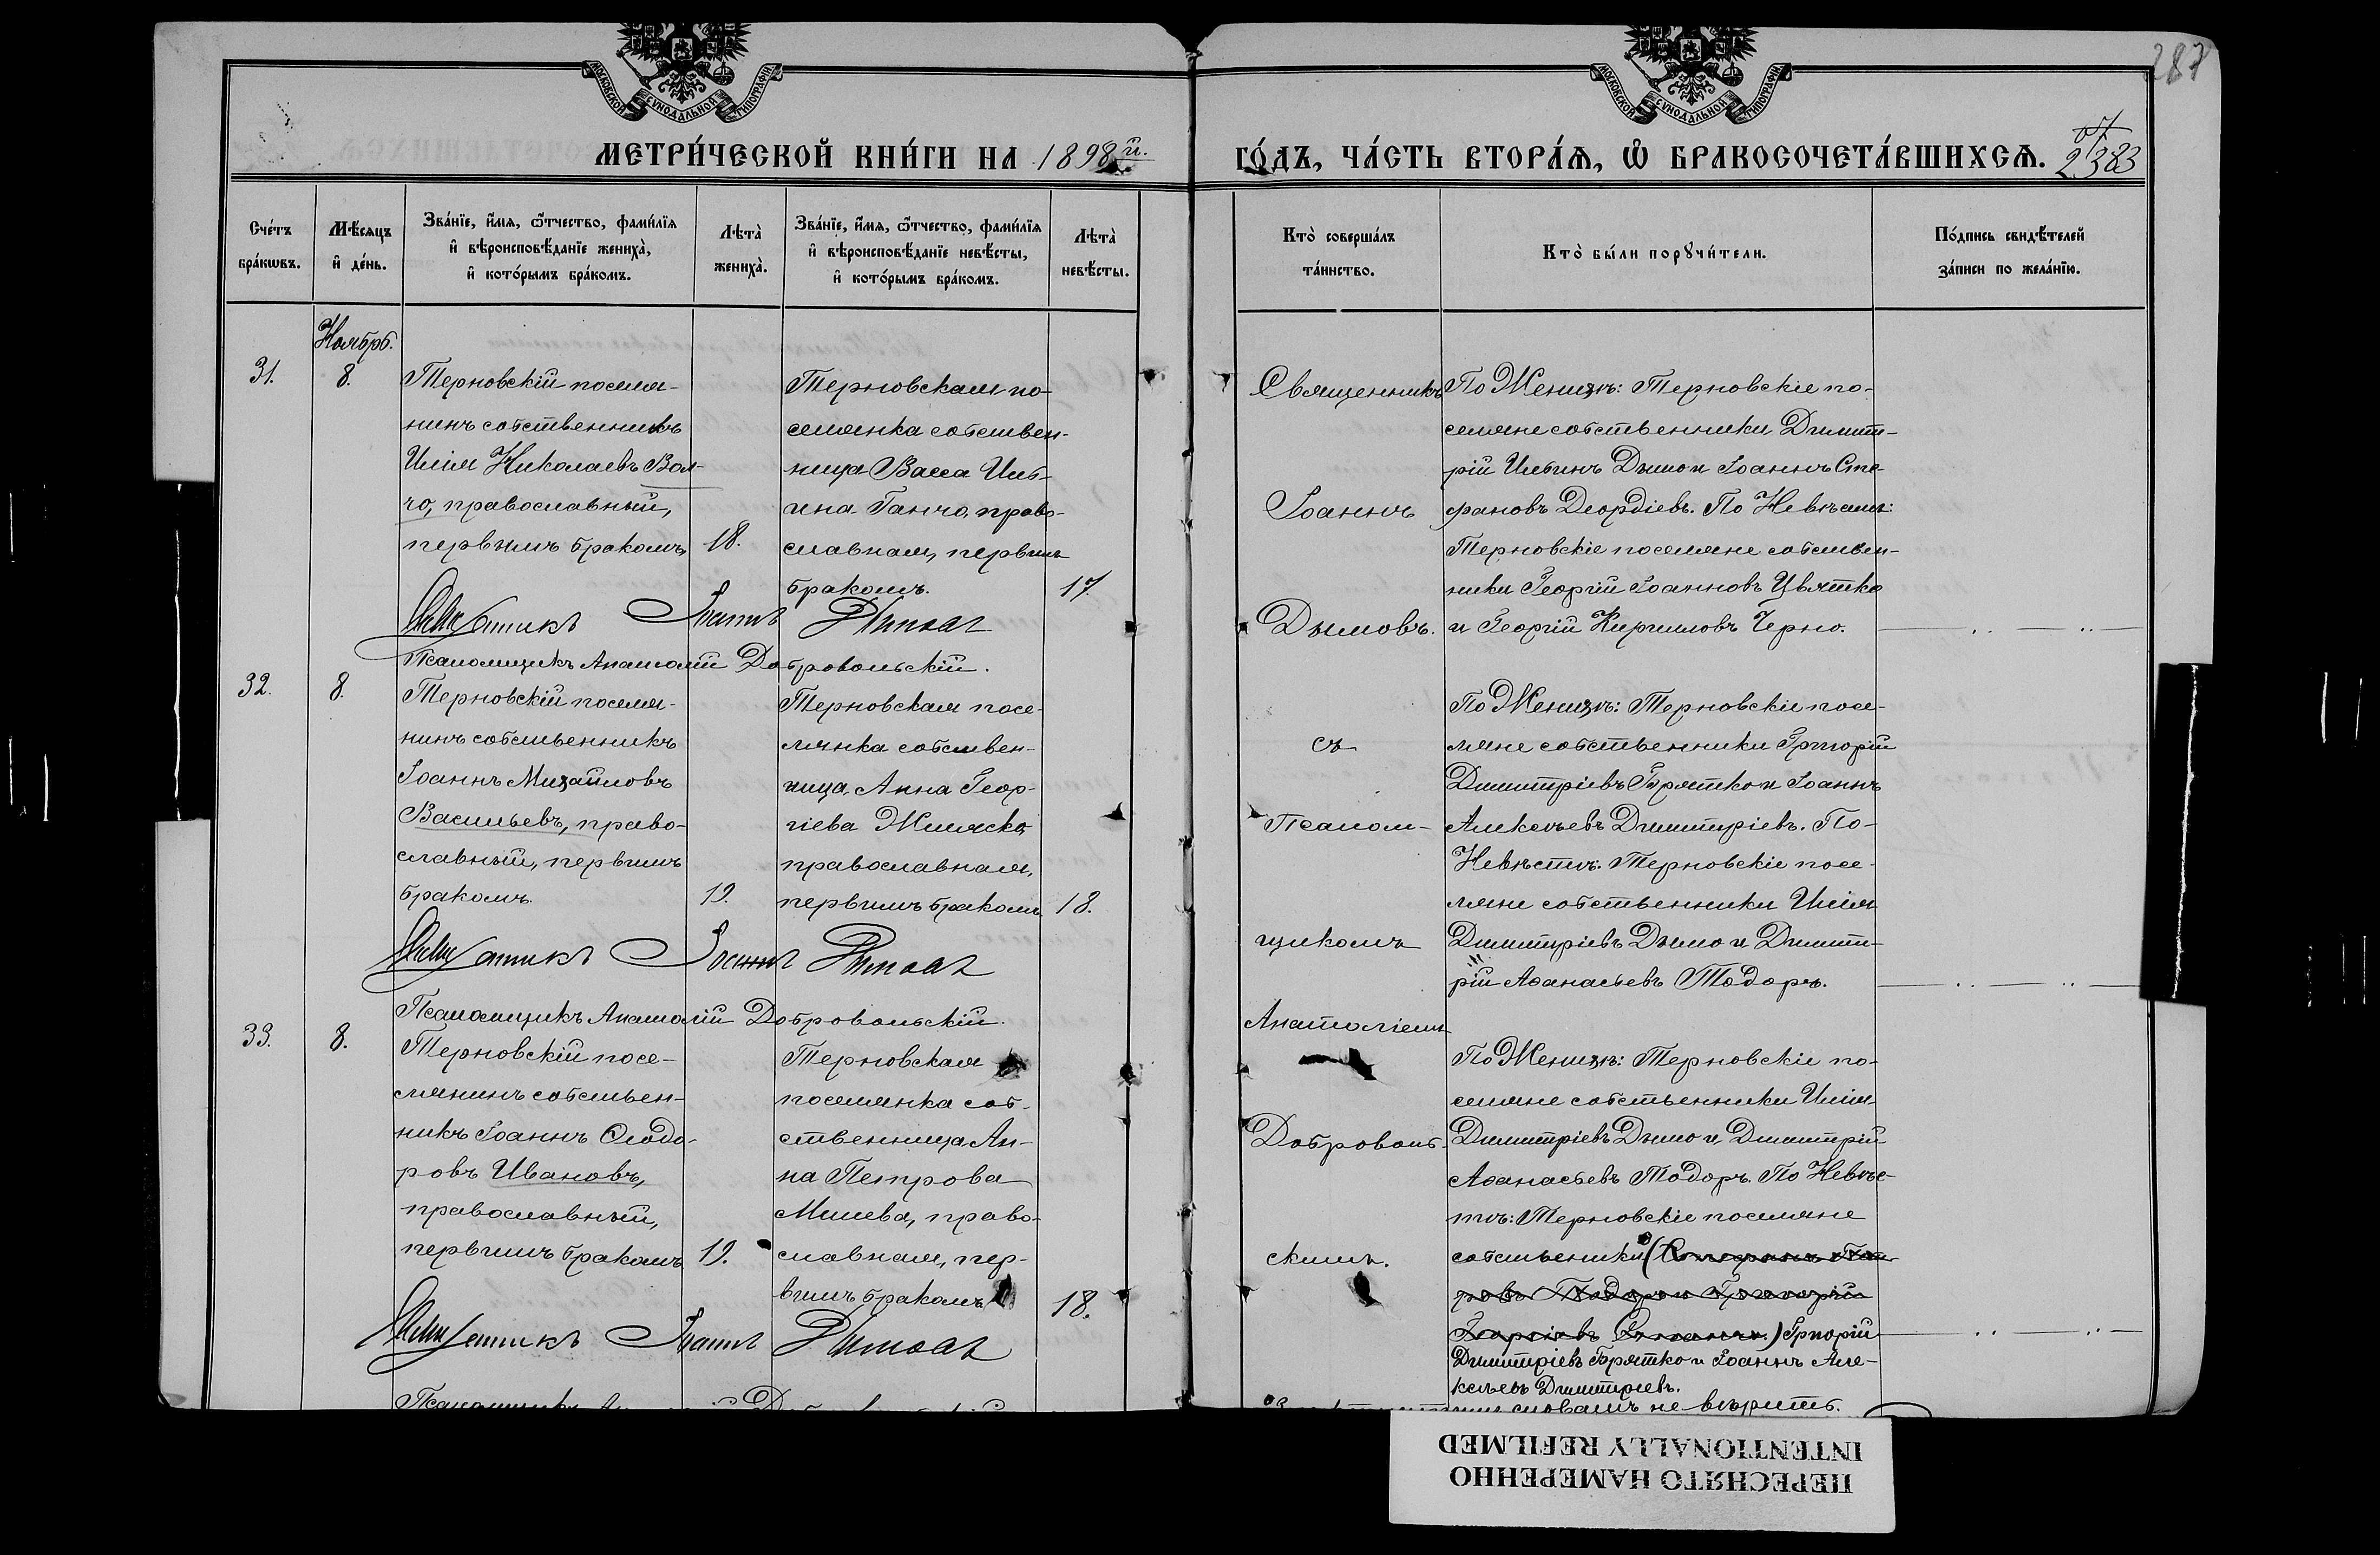 287
МОСКОВСКОЙ СѴНОДАЛЬНОЙ ТИПОГРАФІИ
МОСКОВСКОЙ СѴНОДАЛЬНОЙ ТИПОГРАФІИ
МЕТРИ́ЧЕСКОЙ КНИ́ГИ НА 1898й.
ГО́ДЪ, ЧА́СТЬ ВТОРА́Ѧ, Ѡ҆ БРАКОСОЧЕТА́ВШИХСѦ.
2383
Сче́тъ
бра́кѡвъ.
Мѣ́сяцъ
и҆ де́нь.
Зва́нїе, и҆́мѧ, ѻ҆́тчество, фами́лїѧ
и҆ вѣроисповѣ́данїе жениха̀,
и҆ кото́рымъ бра́комъ.
Лѣта̀
жениха̀.
Зва́нїе, и҆́мѧ, ѻ҆́тчество, фами́лїѧ
и҆ вѣроисповѣ́данїе невѣ́сты,
и҆ кото́рымъ бра́комъ.
Лѣта̀
невѣ́сты.
Кто̀ соверша́лъ
та́инство.
Кто̀ бы́ли порꙋчи́тели.
По́дпись свидѣ́телей
за́писи по жела́нїю.
Ноябрь.
31.
8.
Терновскій поселя-
нинъ собственникъ
Илія Николаевъ Вол-
чо, православный,
первымъ бракомъ
18.
Терновская по-
селянка собствен-
ница Васса Иль-
ина Ганчо, право-
славная, первым
бракомъ.
17
Священникъ
Іоаннъ
Дымовъ.
По Женихѣ: Терновскіе по-
селяне собственники Димит-
рій Ильинъ Дымо и Іоаннъ Сте-
фановъ Деордіевъ. По Невѣстѣ:
Терновскіе поселяне собствен-
ники Георгій Іоанновъ Цвятко
и Георгій Кирилловъ Черно.
Священникъ Іоаннъ Дымовъ
Псаломщикъ Анатолій Добровольскій.
32.
8.
Терновскій поселя-
нинъ собственникъ
Іоаннъ Михайловъ
Васильевъ, право-
славный, первымъ
бракомъ
19.
Терновская посе-
лянка собствен-
ница Анна Геор-
гіева Жиляско,
православная,
первымъ бракомъ
18.
съ
Псалом-
щикомъ
По Женихѣ: Терновскіе посе-
ляне собственники Григорій
Димитріевъ Братко и Іоаннъ
Алексѣевъ Димитріевъ. По
Невѣстѣ: Терновскіе посе-
ляне собственники Илія
Димитріевъ Дымо и Димит-
рій Аѳанасьевъ Тодоръ.
Священникъ Іоаннъ Дымовъ
Псаломщикъ Анатолій Добровольскій.
33.
8.
Терновскій посе-
лянинъ собствен-
никъ Іоаннъ Ѳеодо-
ровъ Ивановъ,
православный,
первымъ бракомъ
19.
Терновская
поселянка соб-
ственница Ан-
на Петрова
Милева, право-
славная, пер-
вымъ бракомъ
18.
Анатоліемъ
Доброволь-
скимъ.
По Женихѣ: Терновскіе по-
селяне собственники Илія
Димитріевъ Дымо и Димитрій
Аѳанасьевъ Тодоръ. По Невѣс-
тѣ: Терновскіе поселяне
собственники
Григорій
Димитріевъ Братко и Іоаннъ Але-
ксѣевъ Димитріевъ.
Священникъ Іоаннъ Дымовъ
словамъ не вѣрить.
ПЕРЕСНЯТО НАМЕРЕННО
INTENTIONALLY REFILMED